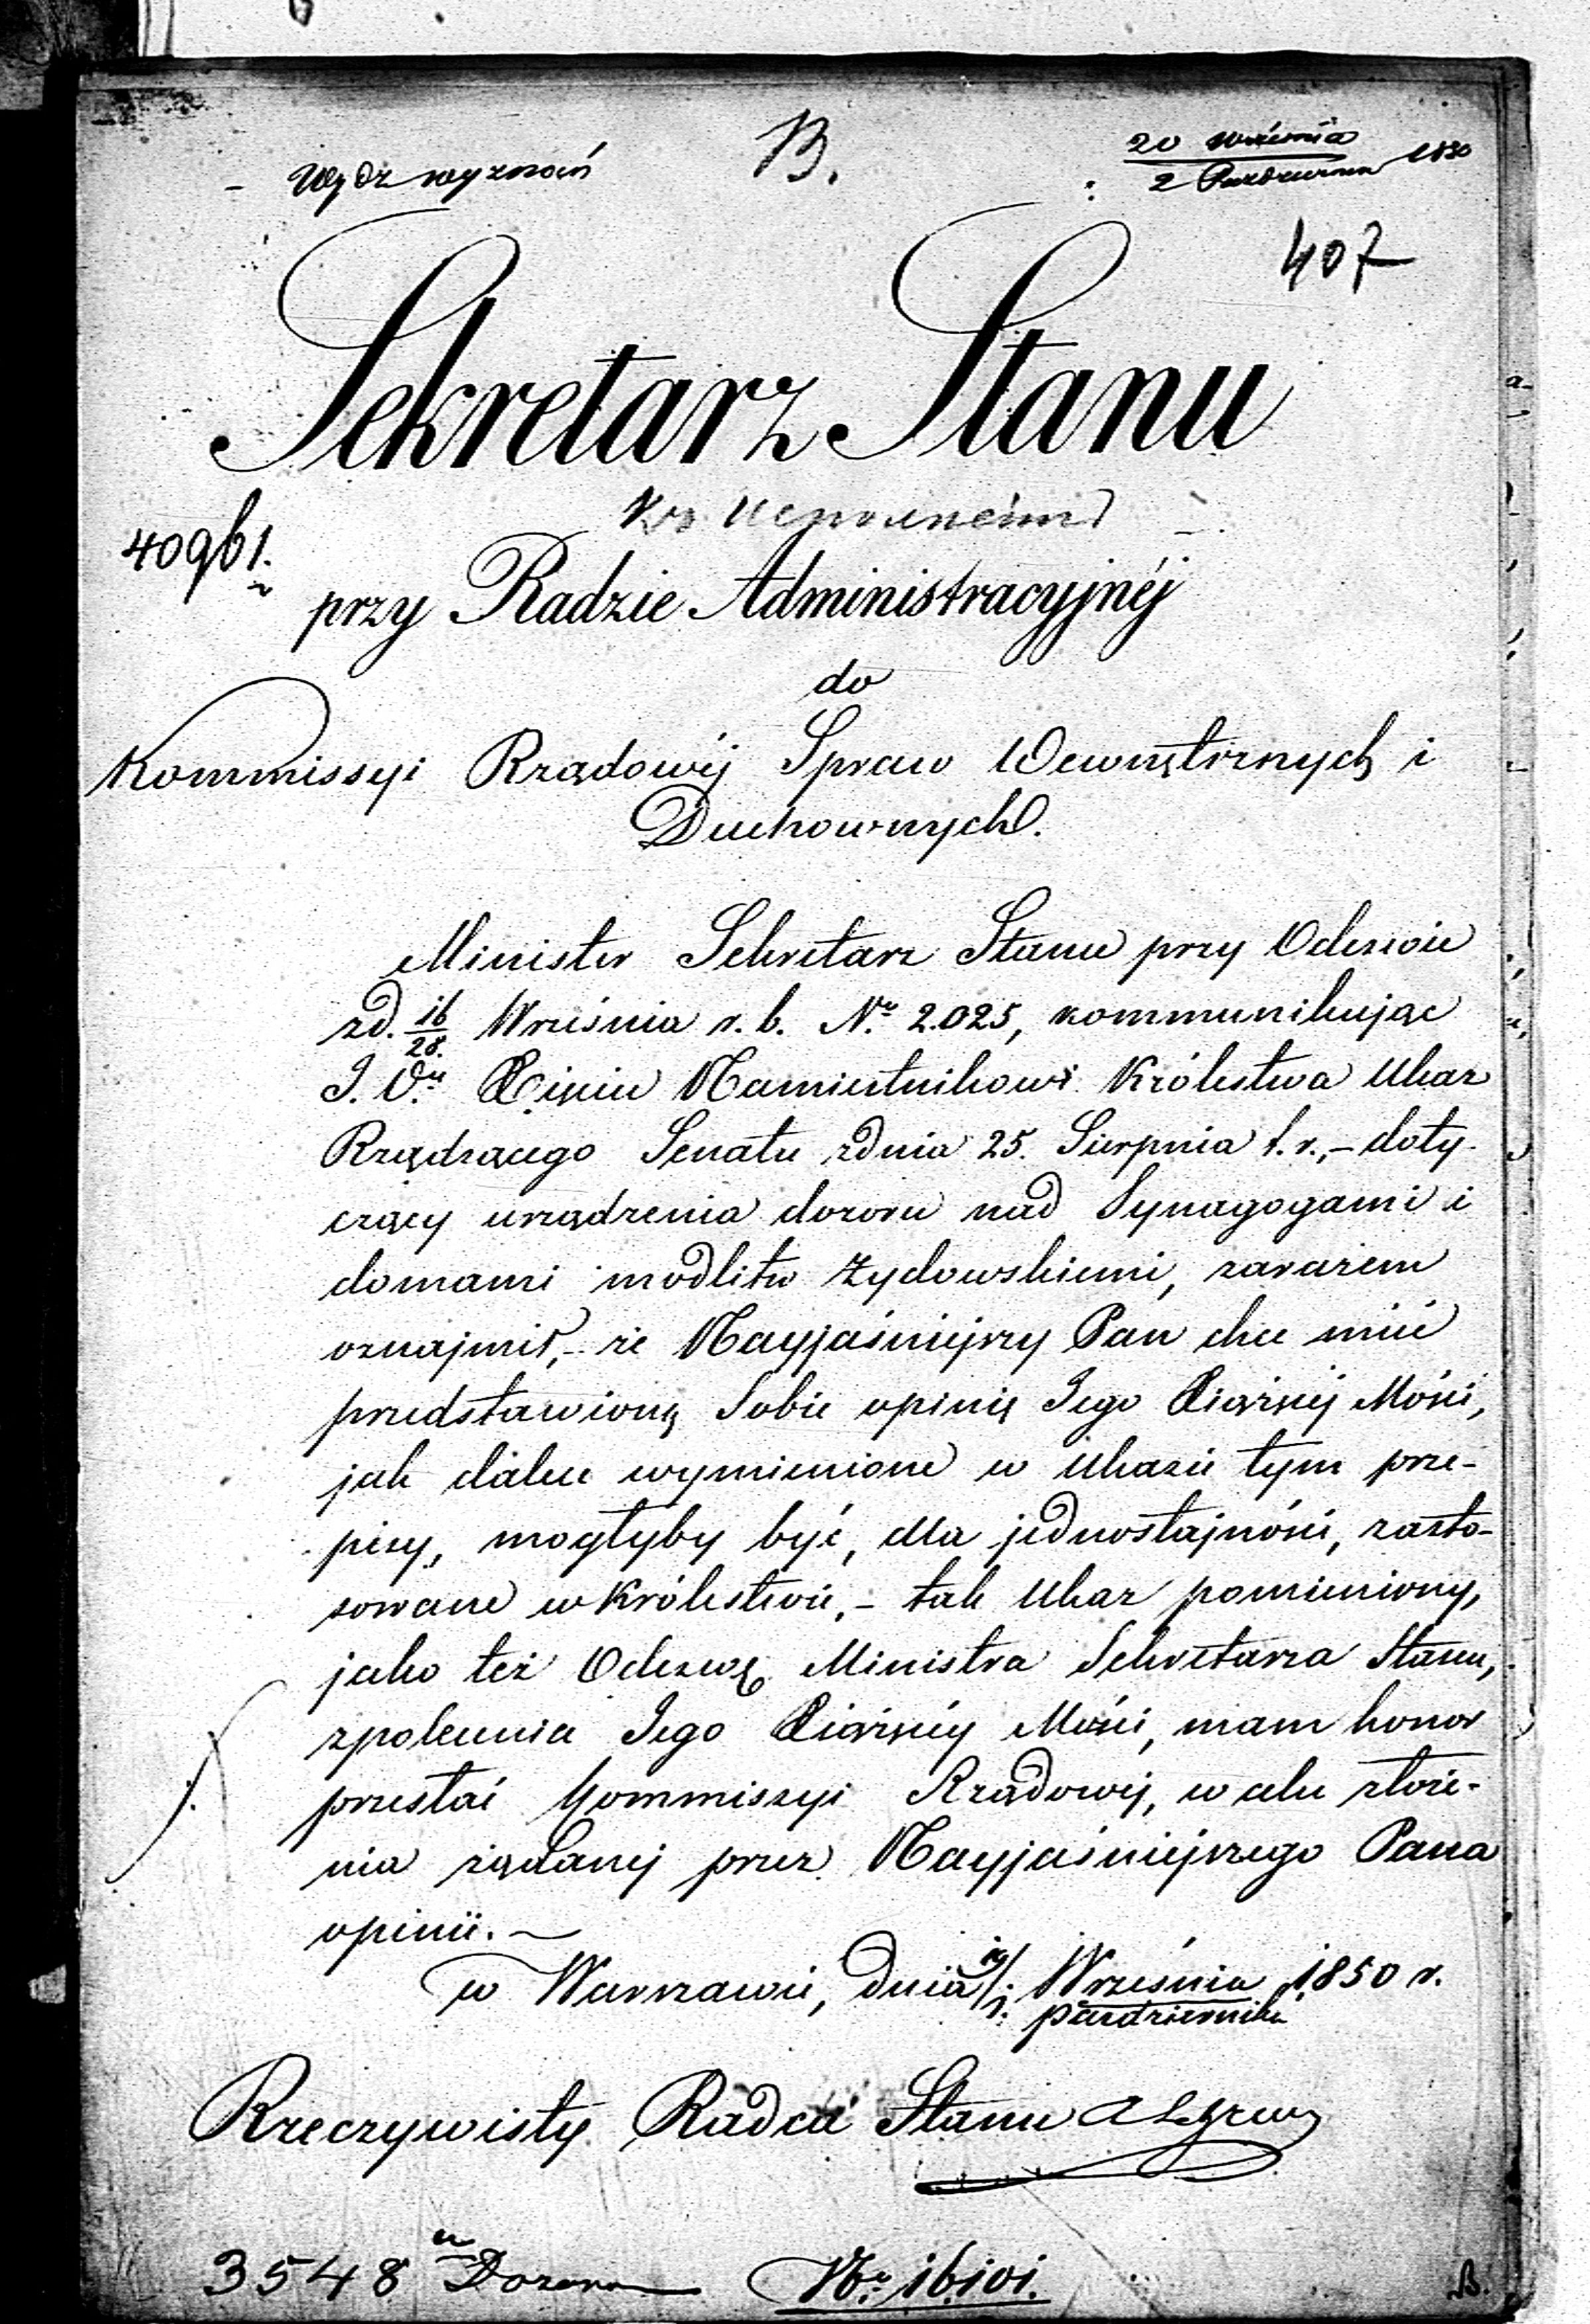 Wydz wyznań
B.
20 Września
2 Października 1850
407
Sekretarz Stanu
40961.
przy Radzie Administracyjnéj
do
Kommissyi Rządowéj Spraw Wewnętrznych i
Duchownych.
Minister Sekretarz Stanu przy Odezwie
zd. 16/28. Września r. b. Nr. 2.025, kommunikując
J. O. Xięciu Namiestnikowi Królestwa Ukaz
Rządzącego Senatu zdnia 25. Sierpnia t. r., – doty-
czący urządzenia dozoru nad Synagogami i
domami modlitw Żydowskiemi, zarazem
oznajmił, – że Nayjaśniejszy Pan chce mieć
przedstawioną Sobie opinię Jego Xiążęcéj Mości,
jak dalece wymienione w Ukazie tym prze-
pisy, mogłyby być, dla jednostajności, zasto-
sowane w Królestwie, – tak Ukaz pomieniony,
jako też Odezwę Ministra Sekretarza Stanu,
zpolecenia Jego Xiążęcéj Mości, mam honor
przesłać Kommissyi Rządowéj, w celu złoże-
nia żądanej przez Nayjaśniejszego Pana
opinii. –
w Warszawie, dnia 19/1. Września 1850 r.
Października
Rzeczywisty Radca Stanu
3548 Dozoru Nr. 16101.
B.